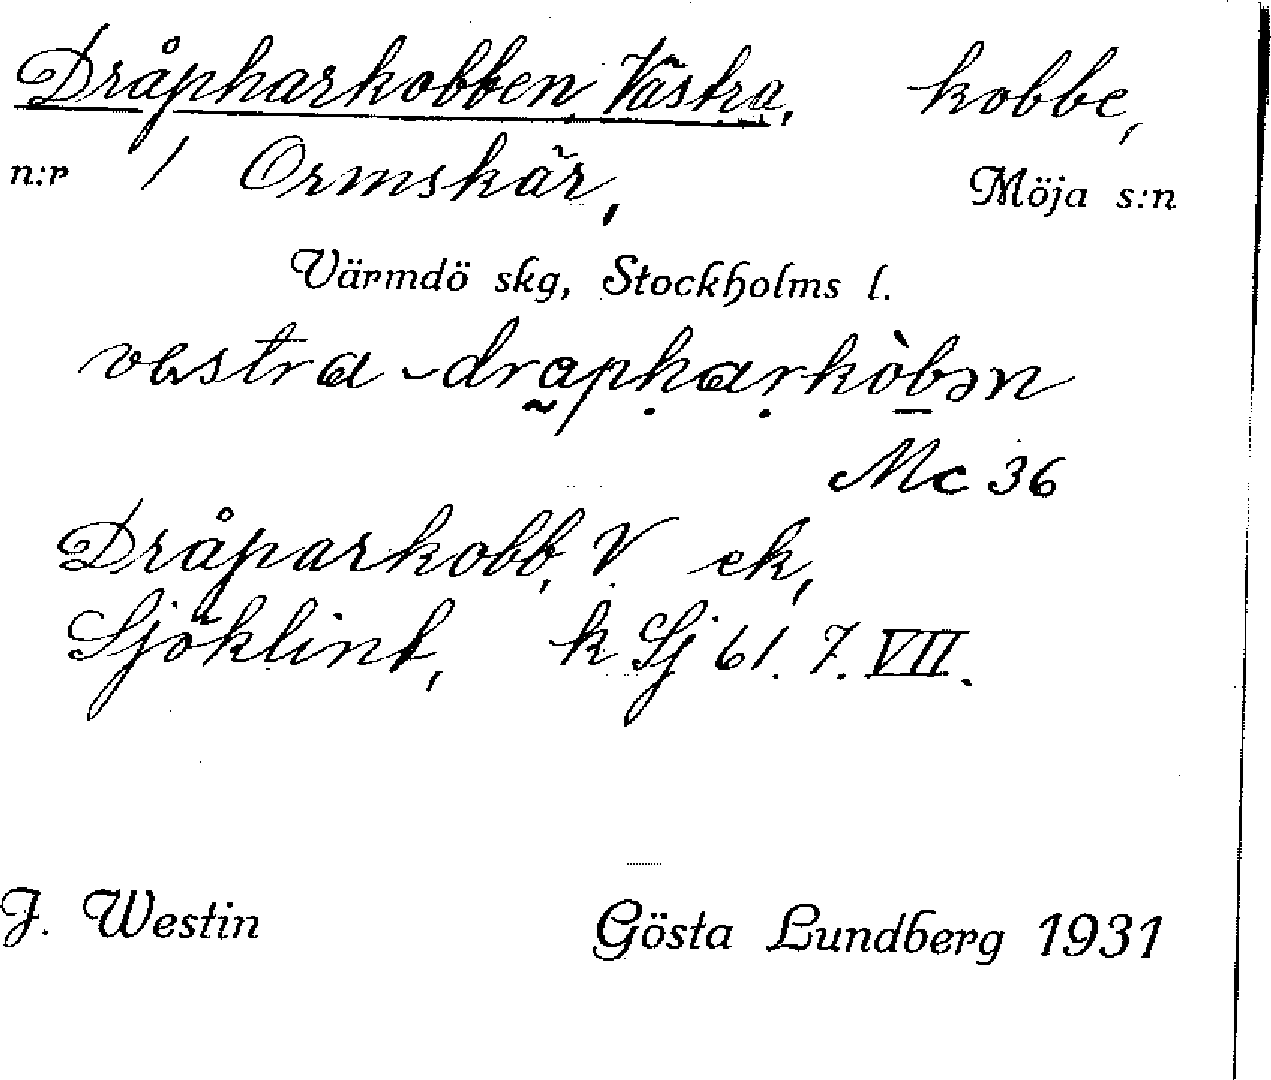 Dråpharkobben, Västra, kobbe,
n:r 1 Ormskär, Möja s:n
Värmdö skg, Stockholms l.
vɛstra-drapharkòbən
Mc 36
Dråparkobb, V. ek,
Sjöklint, k Sj 61. 7. VII.
J. Westin Gösta Lundberg 1931